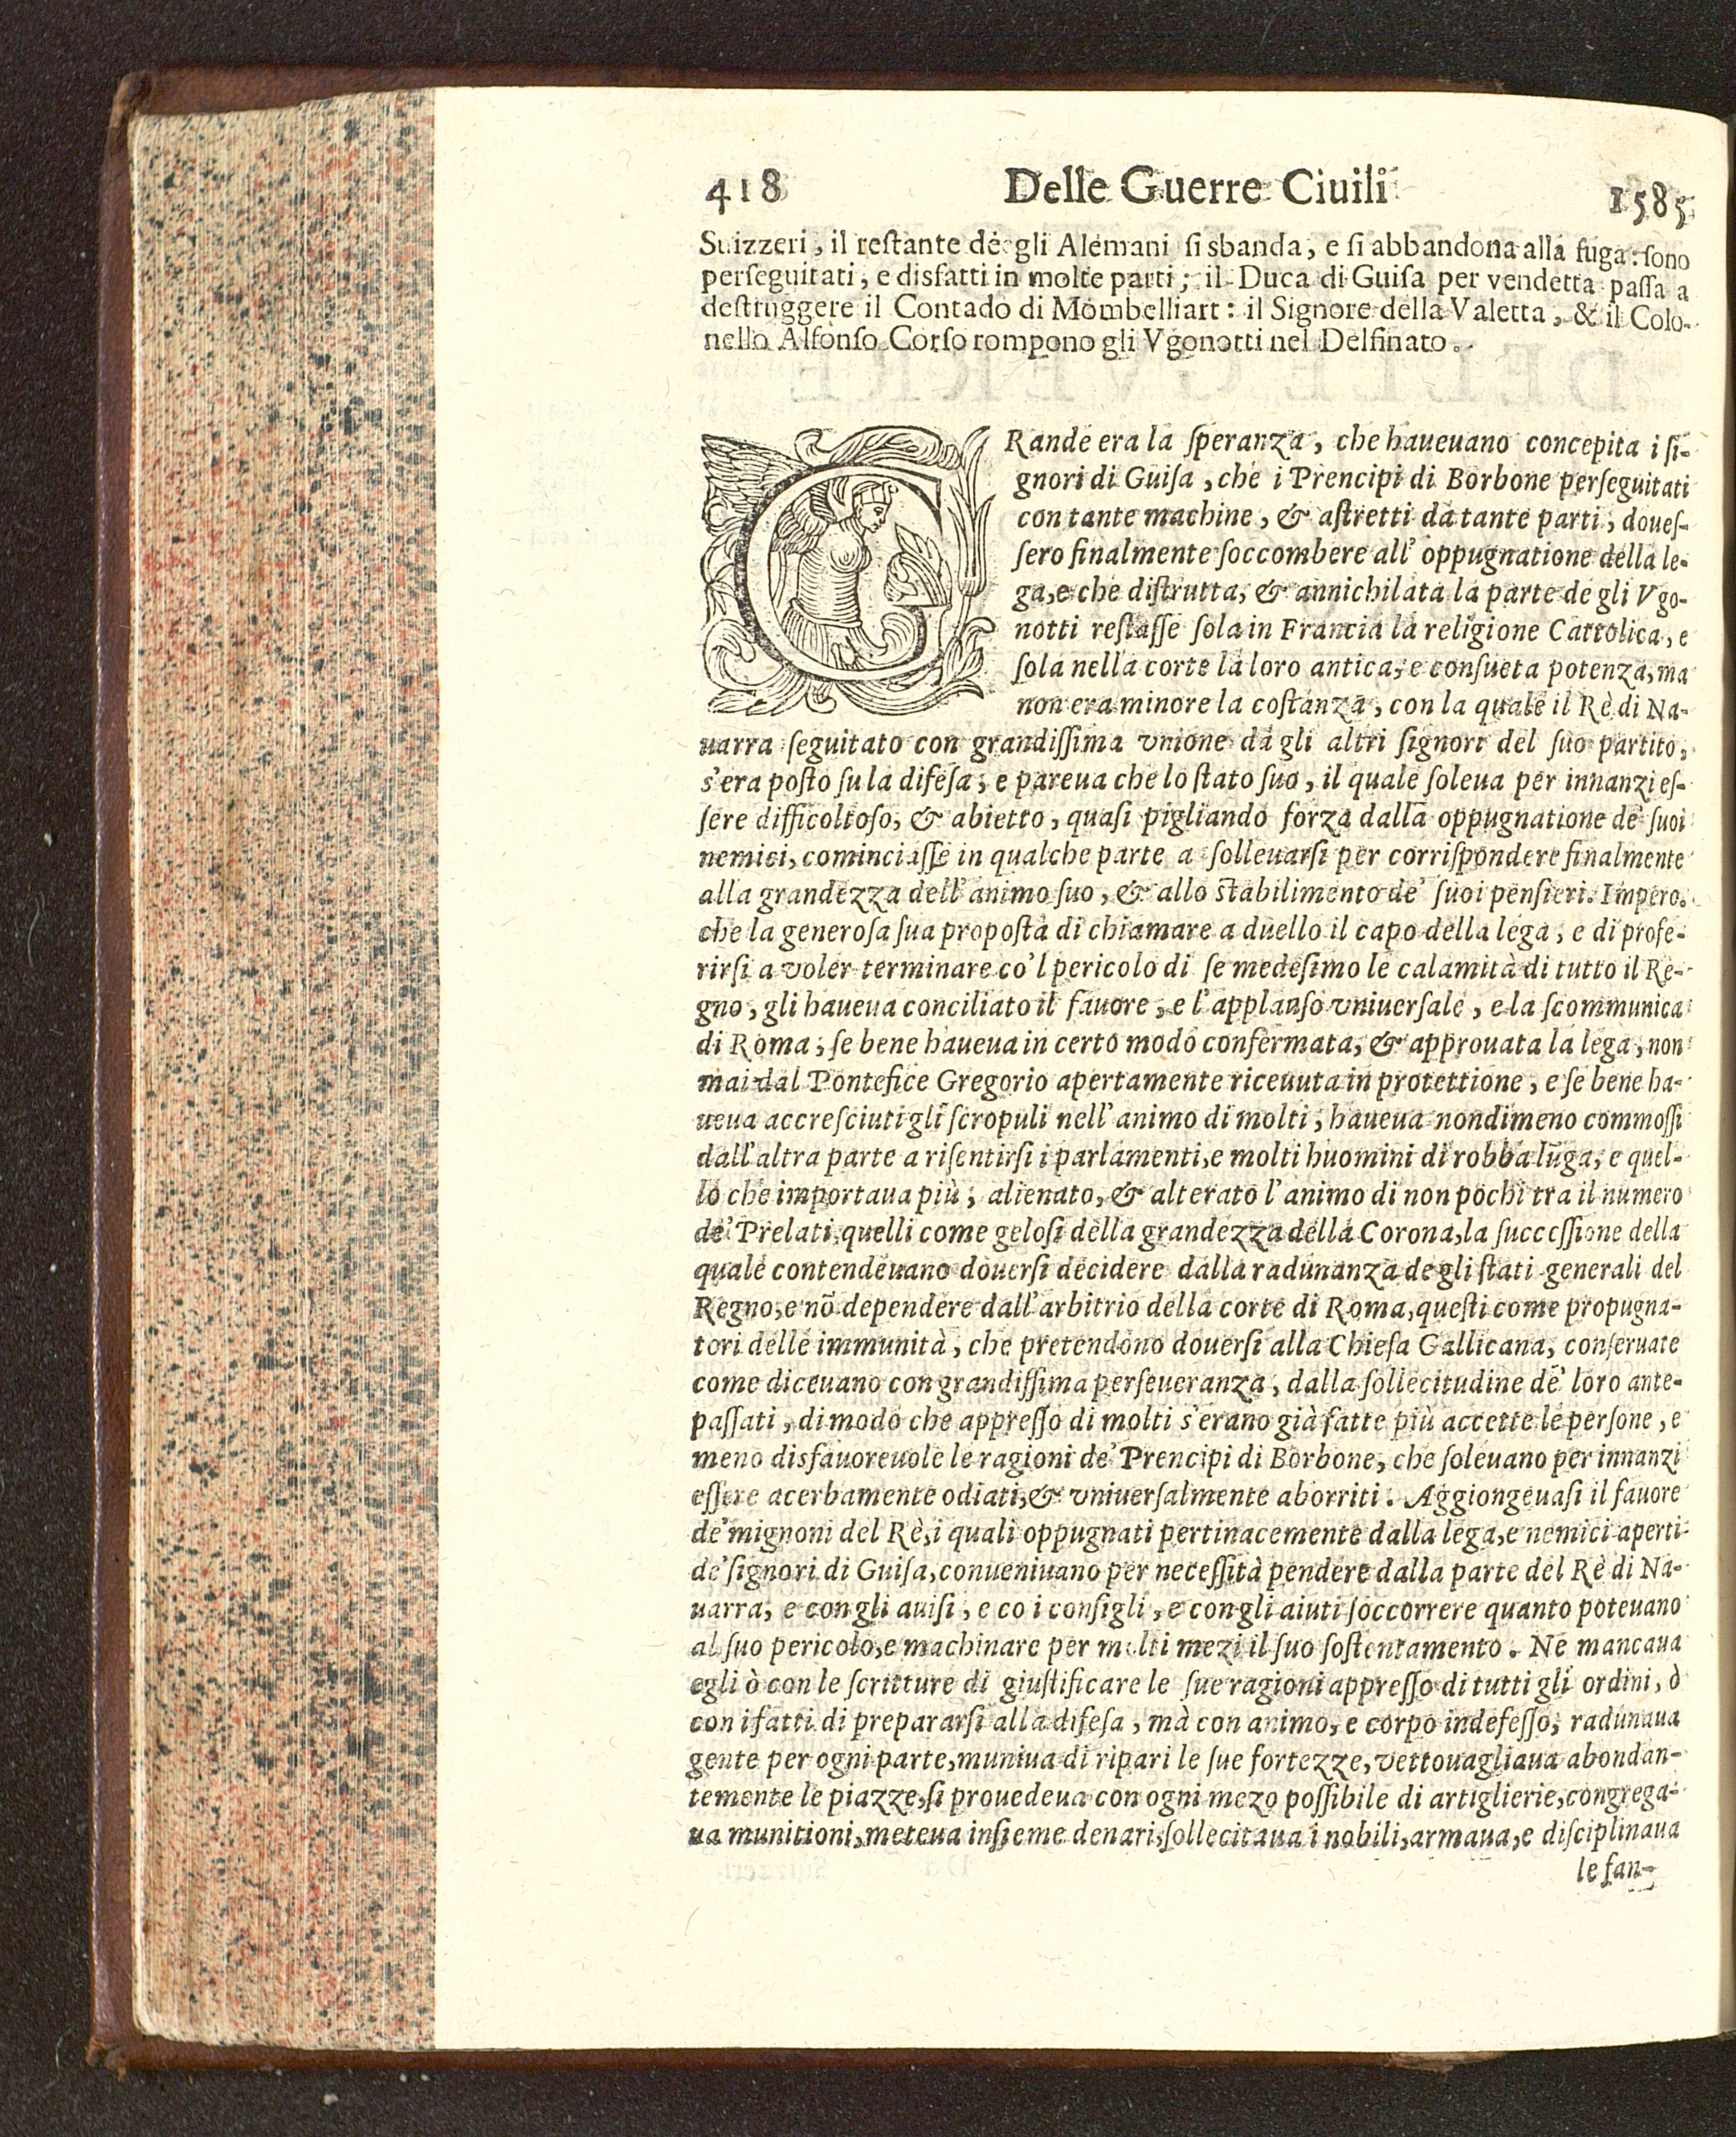 418 Delle Guerre Ciuili 1585
Suizzeri, il reſtante de gli Alemani ſi sbanda, e ſi abbandona alla fuga: ſono
perſeguitati, e disfatti in molte parti; il Duca di Guiſa per vendetta paſſa a
deſtruggere il Contado di Mombelliart: il Signore della Valetta, & il Colo-
nello Alfonſo Corſo rompono gli Vgonotti nel Delfinato.
GRande era la ſperanza, che haueuano concepita i ſi-
gnori di Guiſa, che i Prencipi di Borbone perſeguitati
con tante machine, & aſtretti da tante parti, doueſ-
ſero finalmente ſoccombere all' oppugnatione della le-
ga, e che diſtrutta, & annichilata la parte de gli Vgo-
notti reſtaſſe ſola in Francia la religione Cattolica, e
ſola nella corte la loro antica, e conſueta potenza, ma
non era minore la coſtanza, con la quale il Rè di Na-
uarra ſeguitato con grandiſſima vnione da gli altri ſignori del ſuo partito,
s'era poſto ſu la difeſa, e pareua che lo ſtato ſuo, il quale ſoleua per innanzi eſ-
ſere difficoltoſo, & abietto, quaſi pigliando forza dalla oppugnatione de' ſuoi
nemici, cominciaſſe in qualche parte a ſolleuarſi per corriſpondere finalmente
alla grandezza dell'animo ſuo, & allo ſtabilimento de' ſuoi penſieri. Impero-
che la generoſa ſua propoſta di chiamare a duello il capo della lega, e di profe-
rirſi a voler terminare co'l pericolo di ſe medeſimo le calamità di tutto il Re-
gno, gli haueua conciliato il fauore, e l'applauſo vniuerſale, e la ſcommunica
di Roma, ſe bene haueua in certo modo confermata, & approuata la lega, non
mai dal Pontefice Gregorio apertamente riceuuta in protettione, e ſe bene ha-
ueua accreſciuti gli ſcropuli nell'animo di molti, haueua nondimeno commoſſi
dall'altra parte a riſentirſi i parlamenti, e molti huomini di robba lūga, e quel-
lo che importaua più, alienato, & alterato l'animo di non pochi tra il numero
de' Prelati, quelli come geloſi della grandezza della Corona, la ſucceſſione della
quale contendeuano douerſi decidere dalla radunanza de gli ſtati generali del
Regno, e nō dependere dall'arbitrio della corte di Roma, queſti come propugna-
tori delle immunità, che pretendono douerſi alla Chieſa Gallicana, conſeruate
come diceuano con grandiſſima perſeueranza, dalla ſollecitudine de' loro ante-
paſſati, di modo che appreſſo di molti s'erano già fatte più accette le perſone, e
meno disfauoreuole le ragioni de' Prencipi di Borbone, che ſoleuano per innanzi
eſſere acerbamente odiati, & vniuerſalmente aborriti. Aggiongeuaſi il fauore
de' mignoni del Rè, i quali oppugnati pertinacemente dalla lega, e nemici aperti
de' ſignori di Guiſa, conueniuano per neceſſità pendere dalla parte del Rè di Na-
uarra, e con gli auiſi, e co i conſigli, e con gli aiuti ſoccorrere quanto poteuano
al ſuo pericolo, e machinare per molti mezi il ſuo ſoſtentamento. Nè mancaua
egli ò con le ſcritture di giuſtificare le ſue ragioni appreſſo di tutti gli ordini, ò
con i fatti di prepararſi alla difeſa, mà con animo, e corpo indefeſſo, radunaua
gente per ogni parte, muniua di ripari le ſue fortezze, vettouagliaua abondan-
temente le piazze, ſi prouedeua con ogni mezo poſſibile di artiglierie, congrega-
ua munitioni, meteua inſieme denari, ſollecitaua i nobili, armaua, e diſciplinaua
le fan-